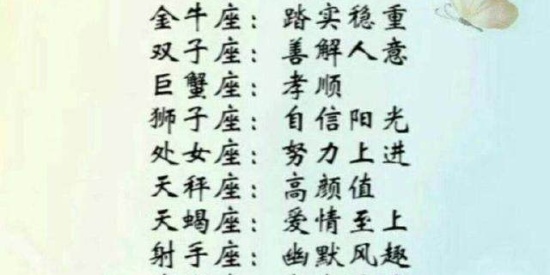 金牛座：踏实稳重
双子座：善解人意
巨蟹座：孝顺
狮子座：自信阳光
处女座：努力上进
天秤座：高颜值
天蝎座：爱情至上
射手座：幽默风趣